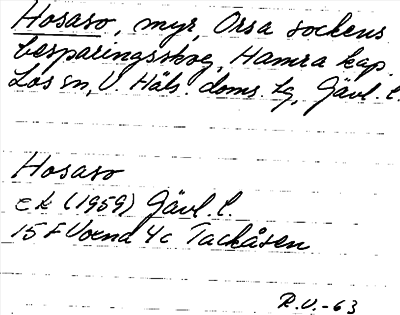 Hosaso, myr, Orsa sockens
besparingsskog, Hamra kap.
Los sn, V. Häls. doms. tg, Gävl. l.
Hosaso
ek (1959) Gävl. l.
15 F Voxna 4c Tackåsen
R.V.-63